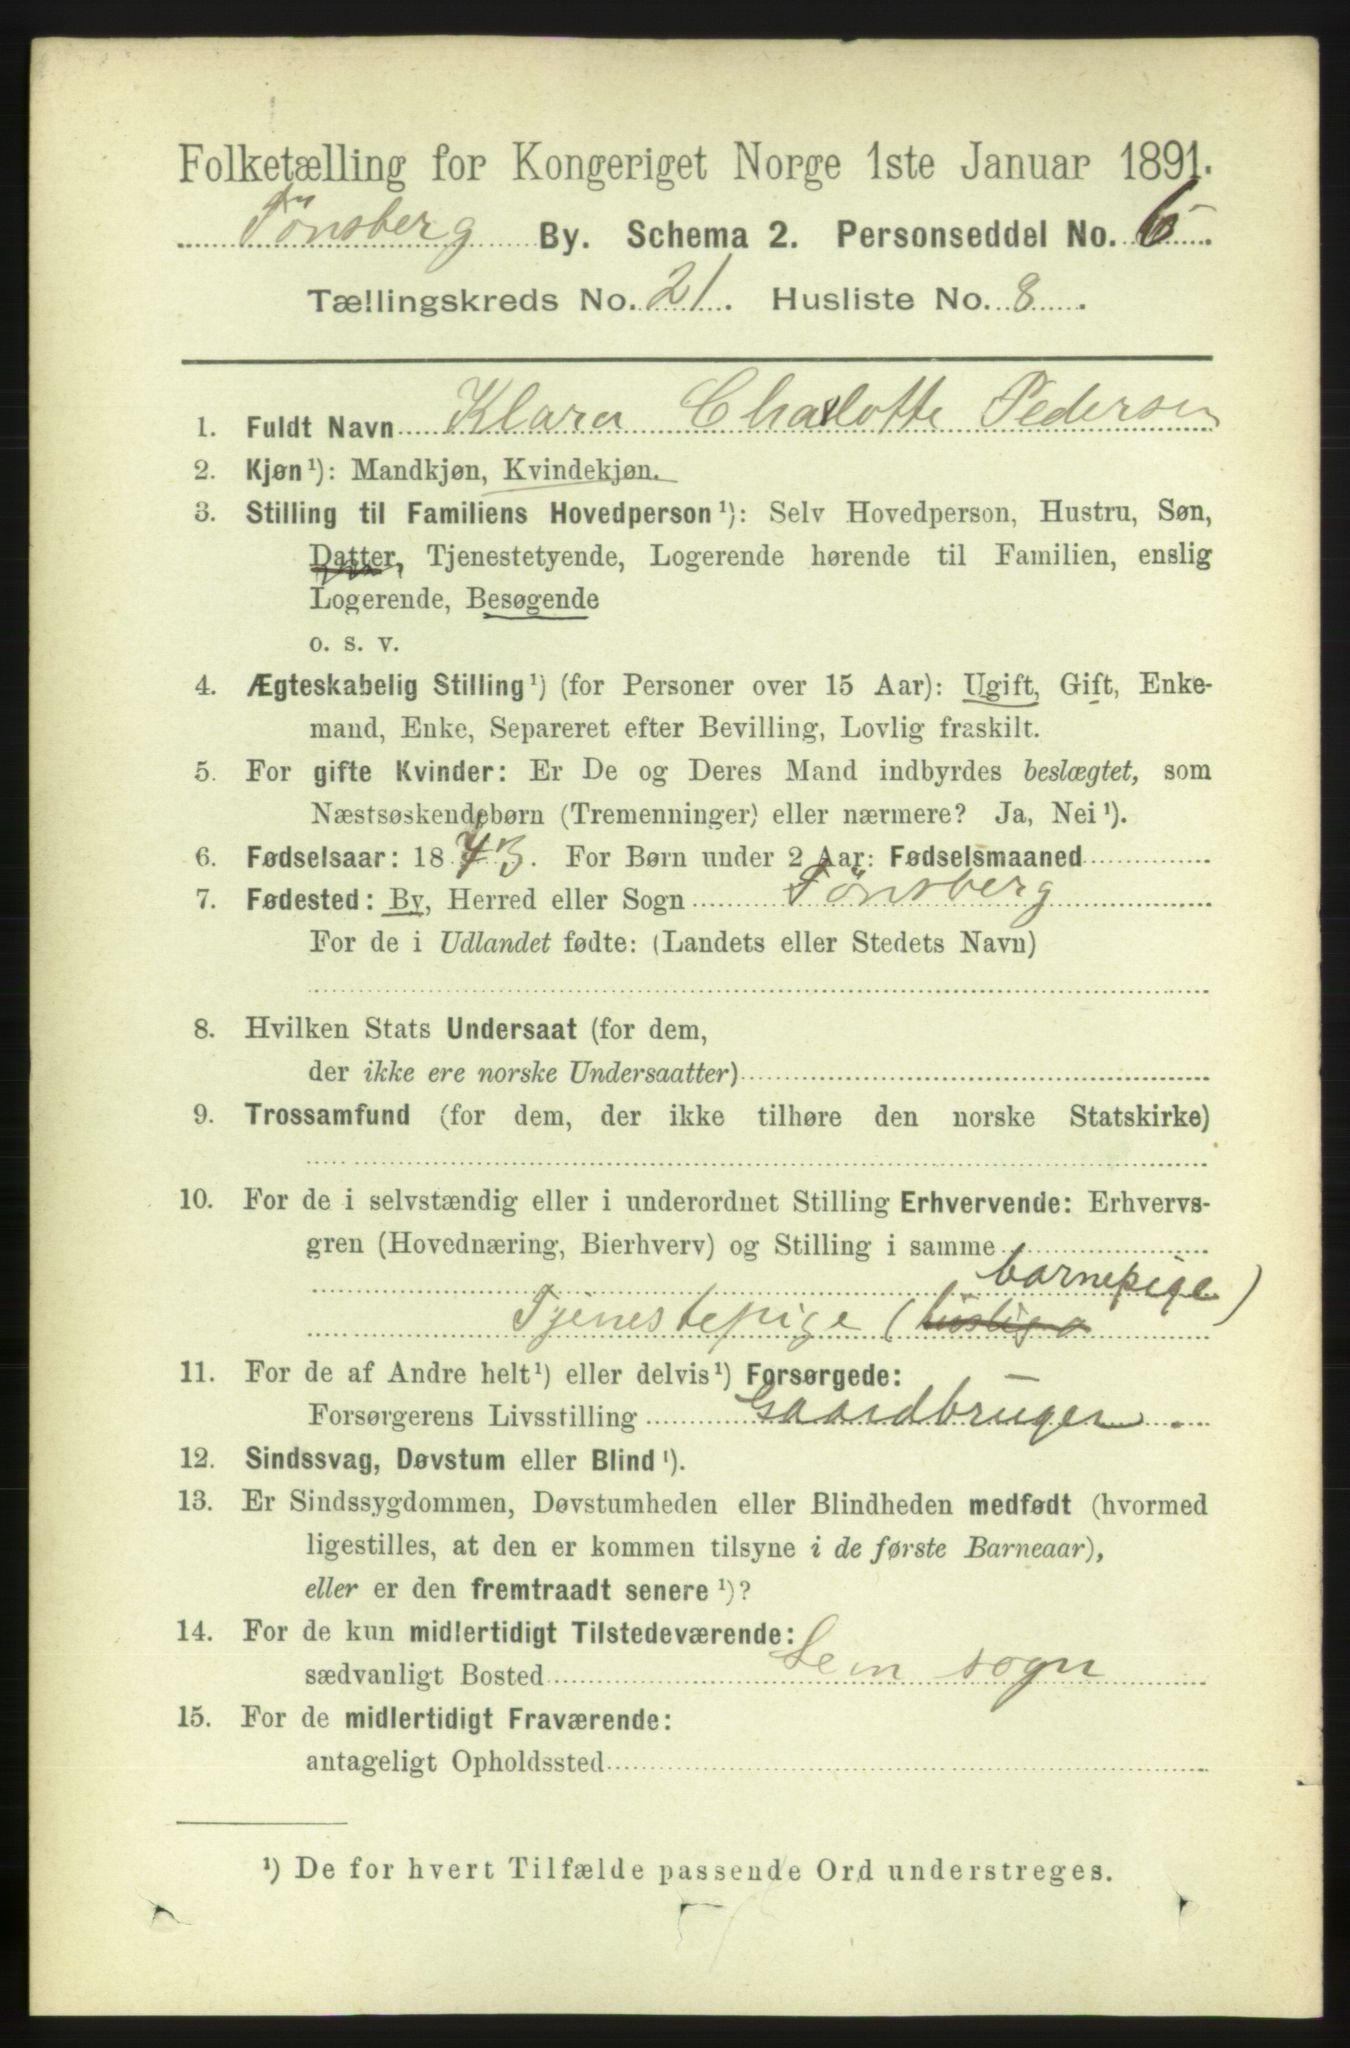 Folketælling for Kongeriget Norge 1ste Januar 1891.
Tönsberg By. Schema 2. Personseddel No. 6.
Tællingskreds No. 21. Husliste No. 8.
1. Fuldt Navn Klara Charlotte Pedersen
2. Kjøn ¹): Mandkjøn, Kvindekjøn.
3. Stilling til Familiens Hovedperson ¹): Selv Hovedperson, Hustru, Søn,
Datter, Tjenestetyende, Logerende hørende til Familien, enslig
Logerende, Besøgende
o. s. v.
4. Ægteskabelig Stilling ¹) (for Personer over 15 Aar): Ugift, Gift, Enke-
mand, Enke, Separeret efter Bevilling, Lovlig fraskilt.
5. For gifte Kvinder: Er De og Deres Mand indbyrdes beslægtet, som
Næstsøskendebørn (Tremenninger) eller nærmere? Ja, Nei ¹).
6. Fødselsaar: 1873. For Børn under 2 Aar: Fødselsmaaned
7. Fødested: By, Herred eller Sogn Tönsberg
For de i Udlandet fødte: (Landets eller Stedets Navn)
8. Hvilken Stats Undersaat (for dem,
der ikke ere norske Undersaatter)
9. Trossamfund (for dem, der ikke tilhøre den norske Statskirke)
10. For de i selvstændig eller i underordnet Stilling Erhvervende: Erhvervs-
gren (Hovednæring, Bierhverv) og Stilling i samme
barnepige)
Tjenestepige (huslig
11. For de af Andre helt ¹) eller delvis ¹) Forsørgede:
Forsørgerens Livsstilling Gaardbruger.
12. Sindssvag, Døvstum eller Blind ¹).
13. Er Sindssygdommen, Døvstumheden eller Blindheden medfødt (hvormed
ligestilles, at den er kommen tilsyne i de første Barneaar),
eller er den fremtraadt senere ¹)?
14. For de kun midlertidigt Tilstedeværende:
sædvanligt Bosted Sem sogn
15. For de midlertidigt Fraværende:
antageligt Opholdssted
¹) De for hvert Tilfælde passende Ord understreges.